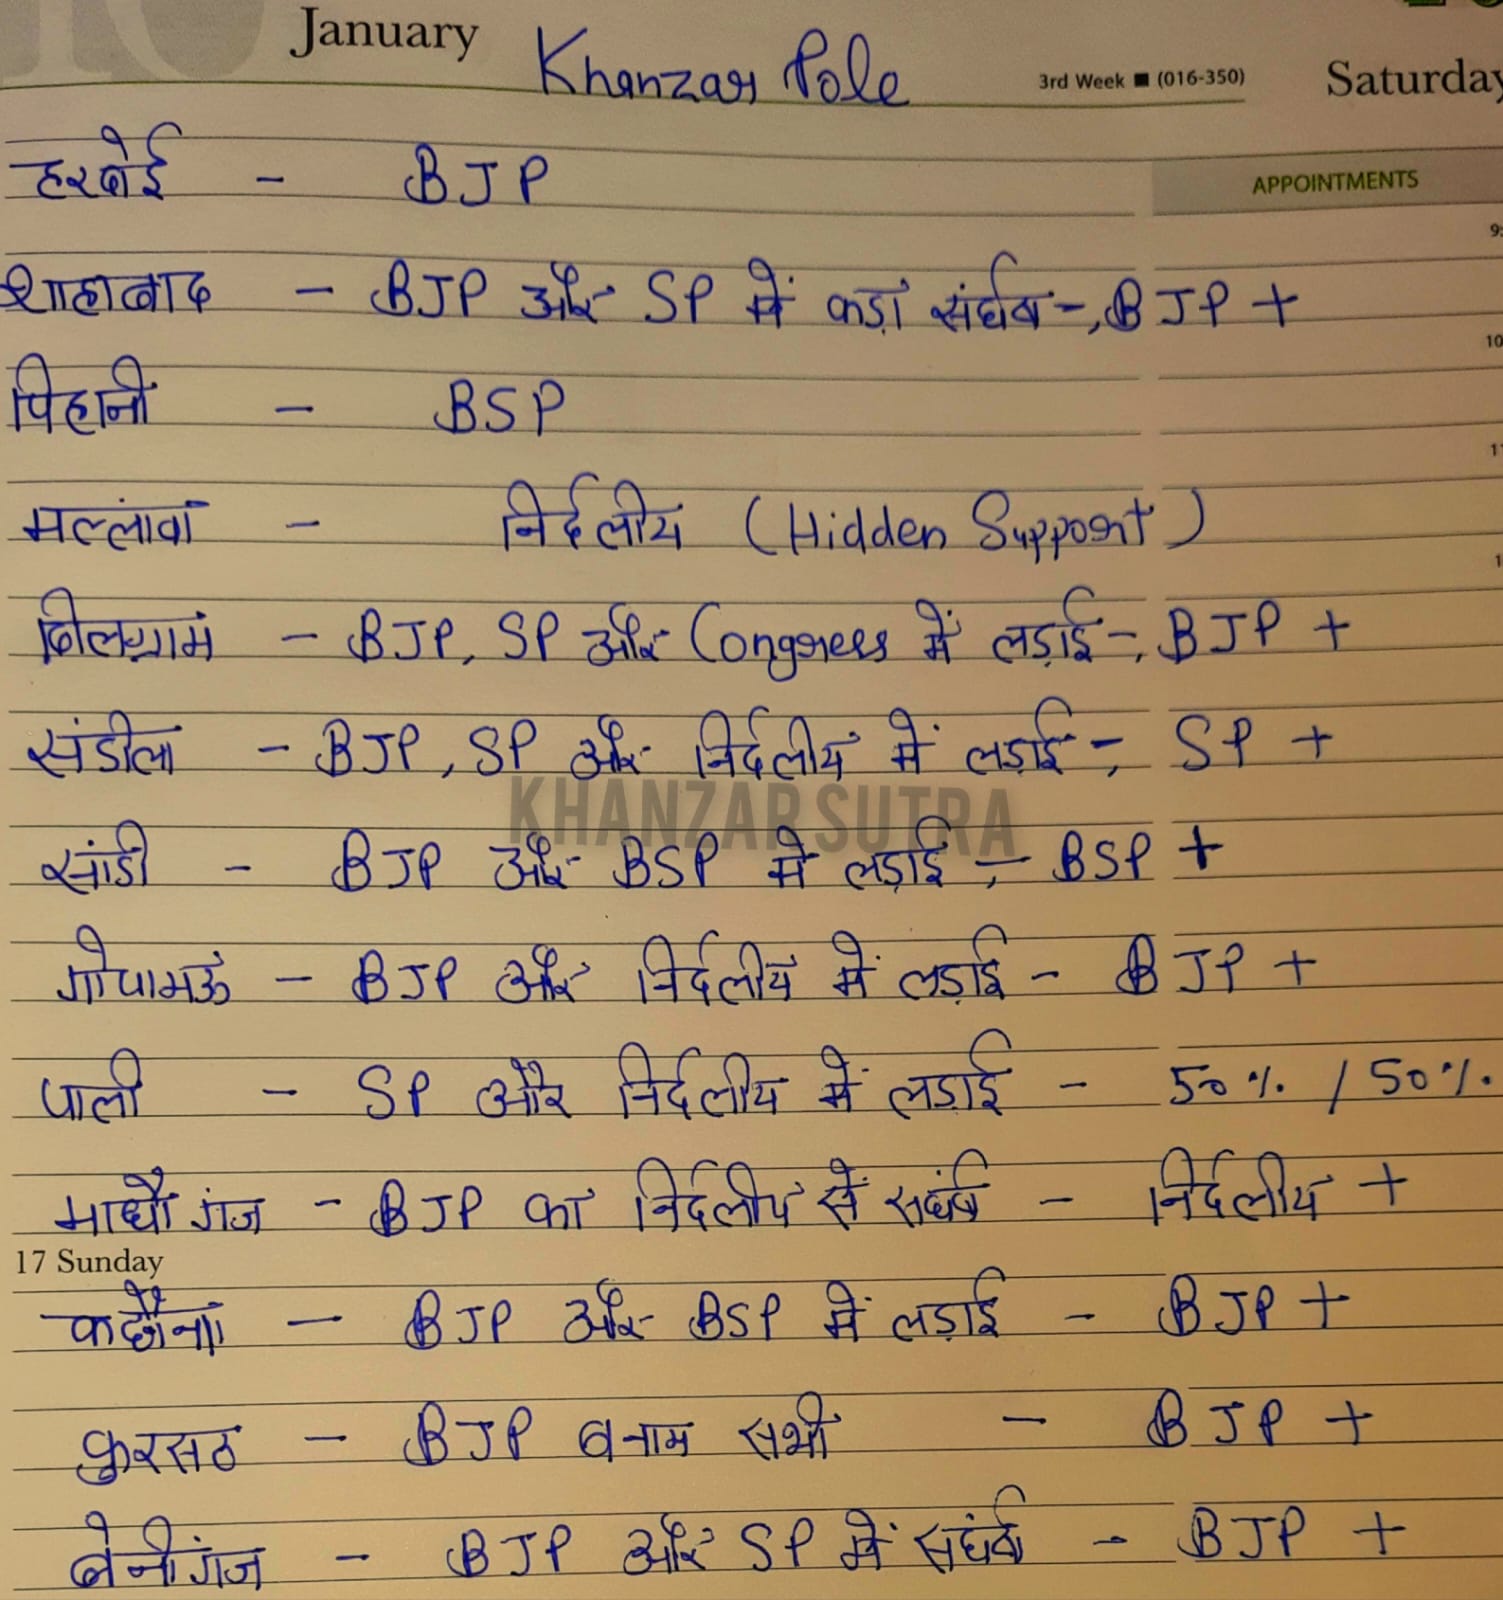 January Khanzar Pole 3rd Week ■ (016-350) Saturday
हरदोई - BJP
APPOINTMENTS
शाहाबाद - BJP और SP में कड़ा संर्घष -, BJP +
पिहानी - BSP
मल्लांवां - निर्दलीय (Hidden Support)
बिलग्राम - BJP, SP और Congress में लड़ाई -, BJP +
संडीला - BJP, SP और निर्दलीय में लड़ाई -, SP +
KHANZAR SUTRA
सांडी - BJP और BSP में लड़ाई -, BSP +
गोपामऊ - BJP और निर्दलीय में लड़ाई - BJP +
पाली - SP और निर्दलीय में लड़ाई - 50% / 50%.
माधौगंज - BJP का निर्दलीय से सघंर्ष - निर्दलीय +
17 Sunday
कछौना - BJP और BSP में लड़ाई - BJP +
कुरसठ - BJP बनाम सभी - BJP +
बेनीगंज - BJP और SP में सघंर्ष - BJP +